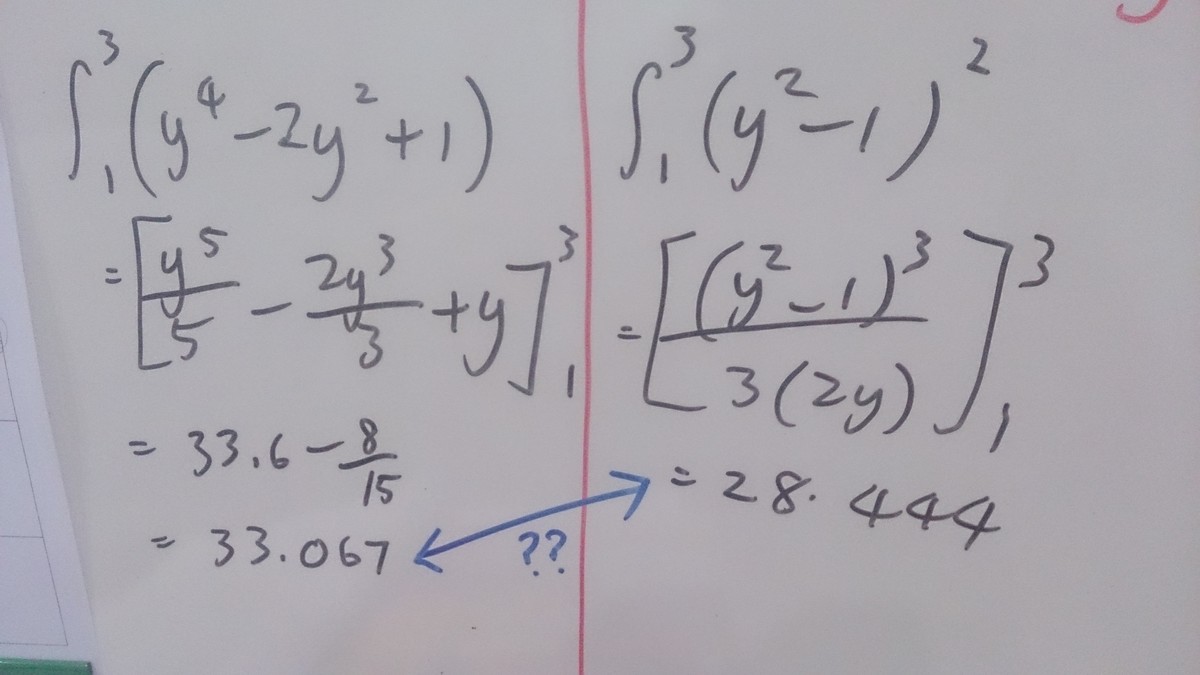 ∫₁³ (y⁴ − 2y² + 1)
= [y⁵/5 − 2y³/3 + y]₁³
= 33.6 − 8/15
= 33.067
??
∫₁³ (y² − 1)²
= [(y² − 1)³ / 3(2y)]₁³
= 28.444